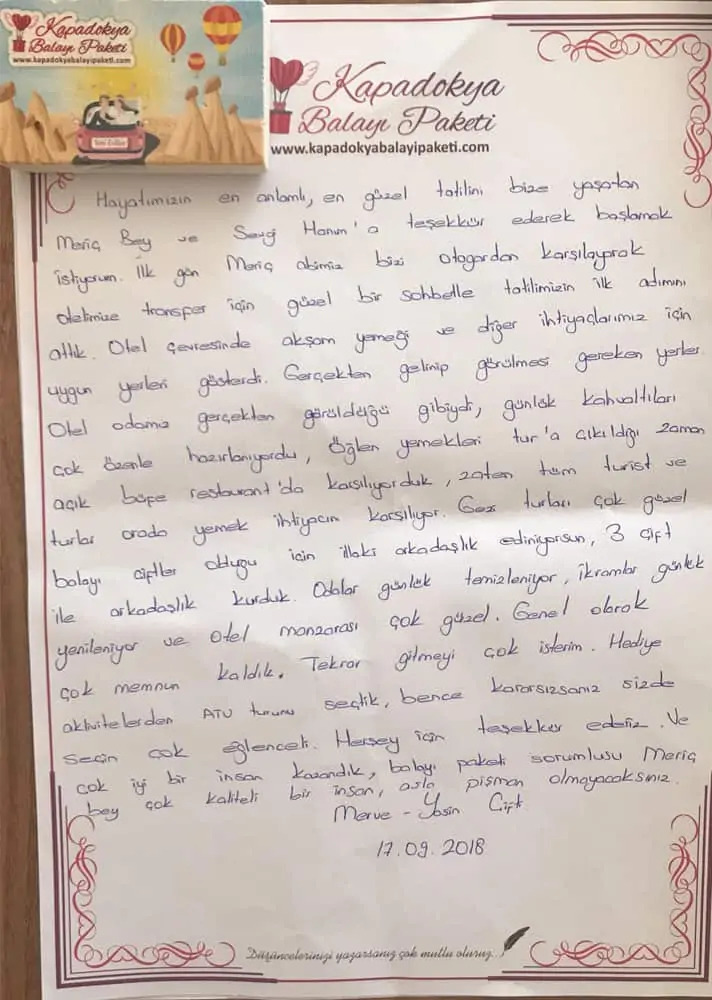 Kapadokya
Balayı Paketi
www.kapadokyabalayipaketi.com
Kapadokya
Balayı Paketi
www.kapadokyabalayipaketi.com
Hayatımızın en anlamlı, en güzel tatilini bize yaşatan
Meriç Bey ve Sevgi Hanım'a teşekkür ederek başlamak
istiyorum. İlk gün Meriç abimiz bizi otogardan karşılayarak
otelimize transfer için güzel bir sohbetle tatilimizin ilk adımını
attık. Otel çevresinde akşam yemeği ve diğer ihtiyaçlarımız için
uygun yerleri gösterdi. Gerçekten gelinip görülmesi gereken yerler
Otel odamız gerçekten görüldüğü gibiydi, günlük kahvaltıları
çok özenle hazırlanıyordu, Öğlen yemekleri tur'a çıkıldığı zaman
açık büfe restaurant'da karşılıyorduk, zaten tüm turist ve
turlar orada yemek ihtiyacın karşılıyor. Gezi turları çok güzel
balayı çiftler olduğu için illaki arkadaşlık ediniyorsun, 3 çift
ile arkadaşlık kurduk. Odalar günlük temizleniyor, ikramlar günlük
yenileniyor ve otel manzarası çok güzel. Genel olarak
çok memnun kaldık. Tekrar gitmeyi çok isterim. Hediye
aktivitelerden ATV turunu seçtik, bence kararsızsanız sizde
seçin çok eğlenceli. Herşey için teşekkür ederiz. Ve
çok iyi bir insan kazandık, balayı paketi sorumlusu Meriç
bey çok kaliteli bir insan, asla pişman olmayacaksınız.
Merve - Yasin Çift
17.09.2018
Düşüncelerinizi yazarsanız çok mutlu oluruz...